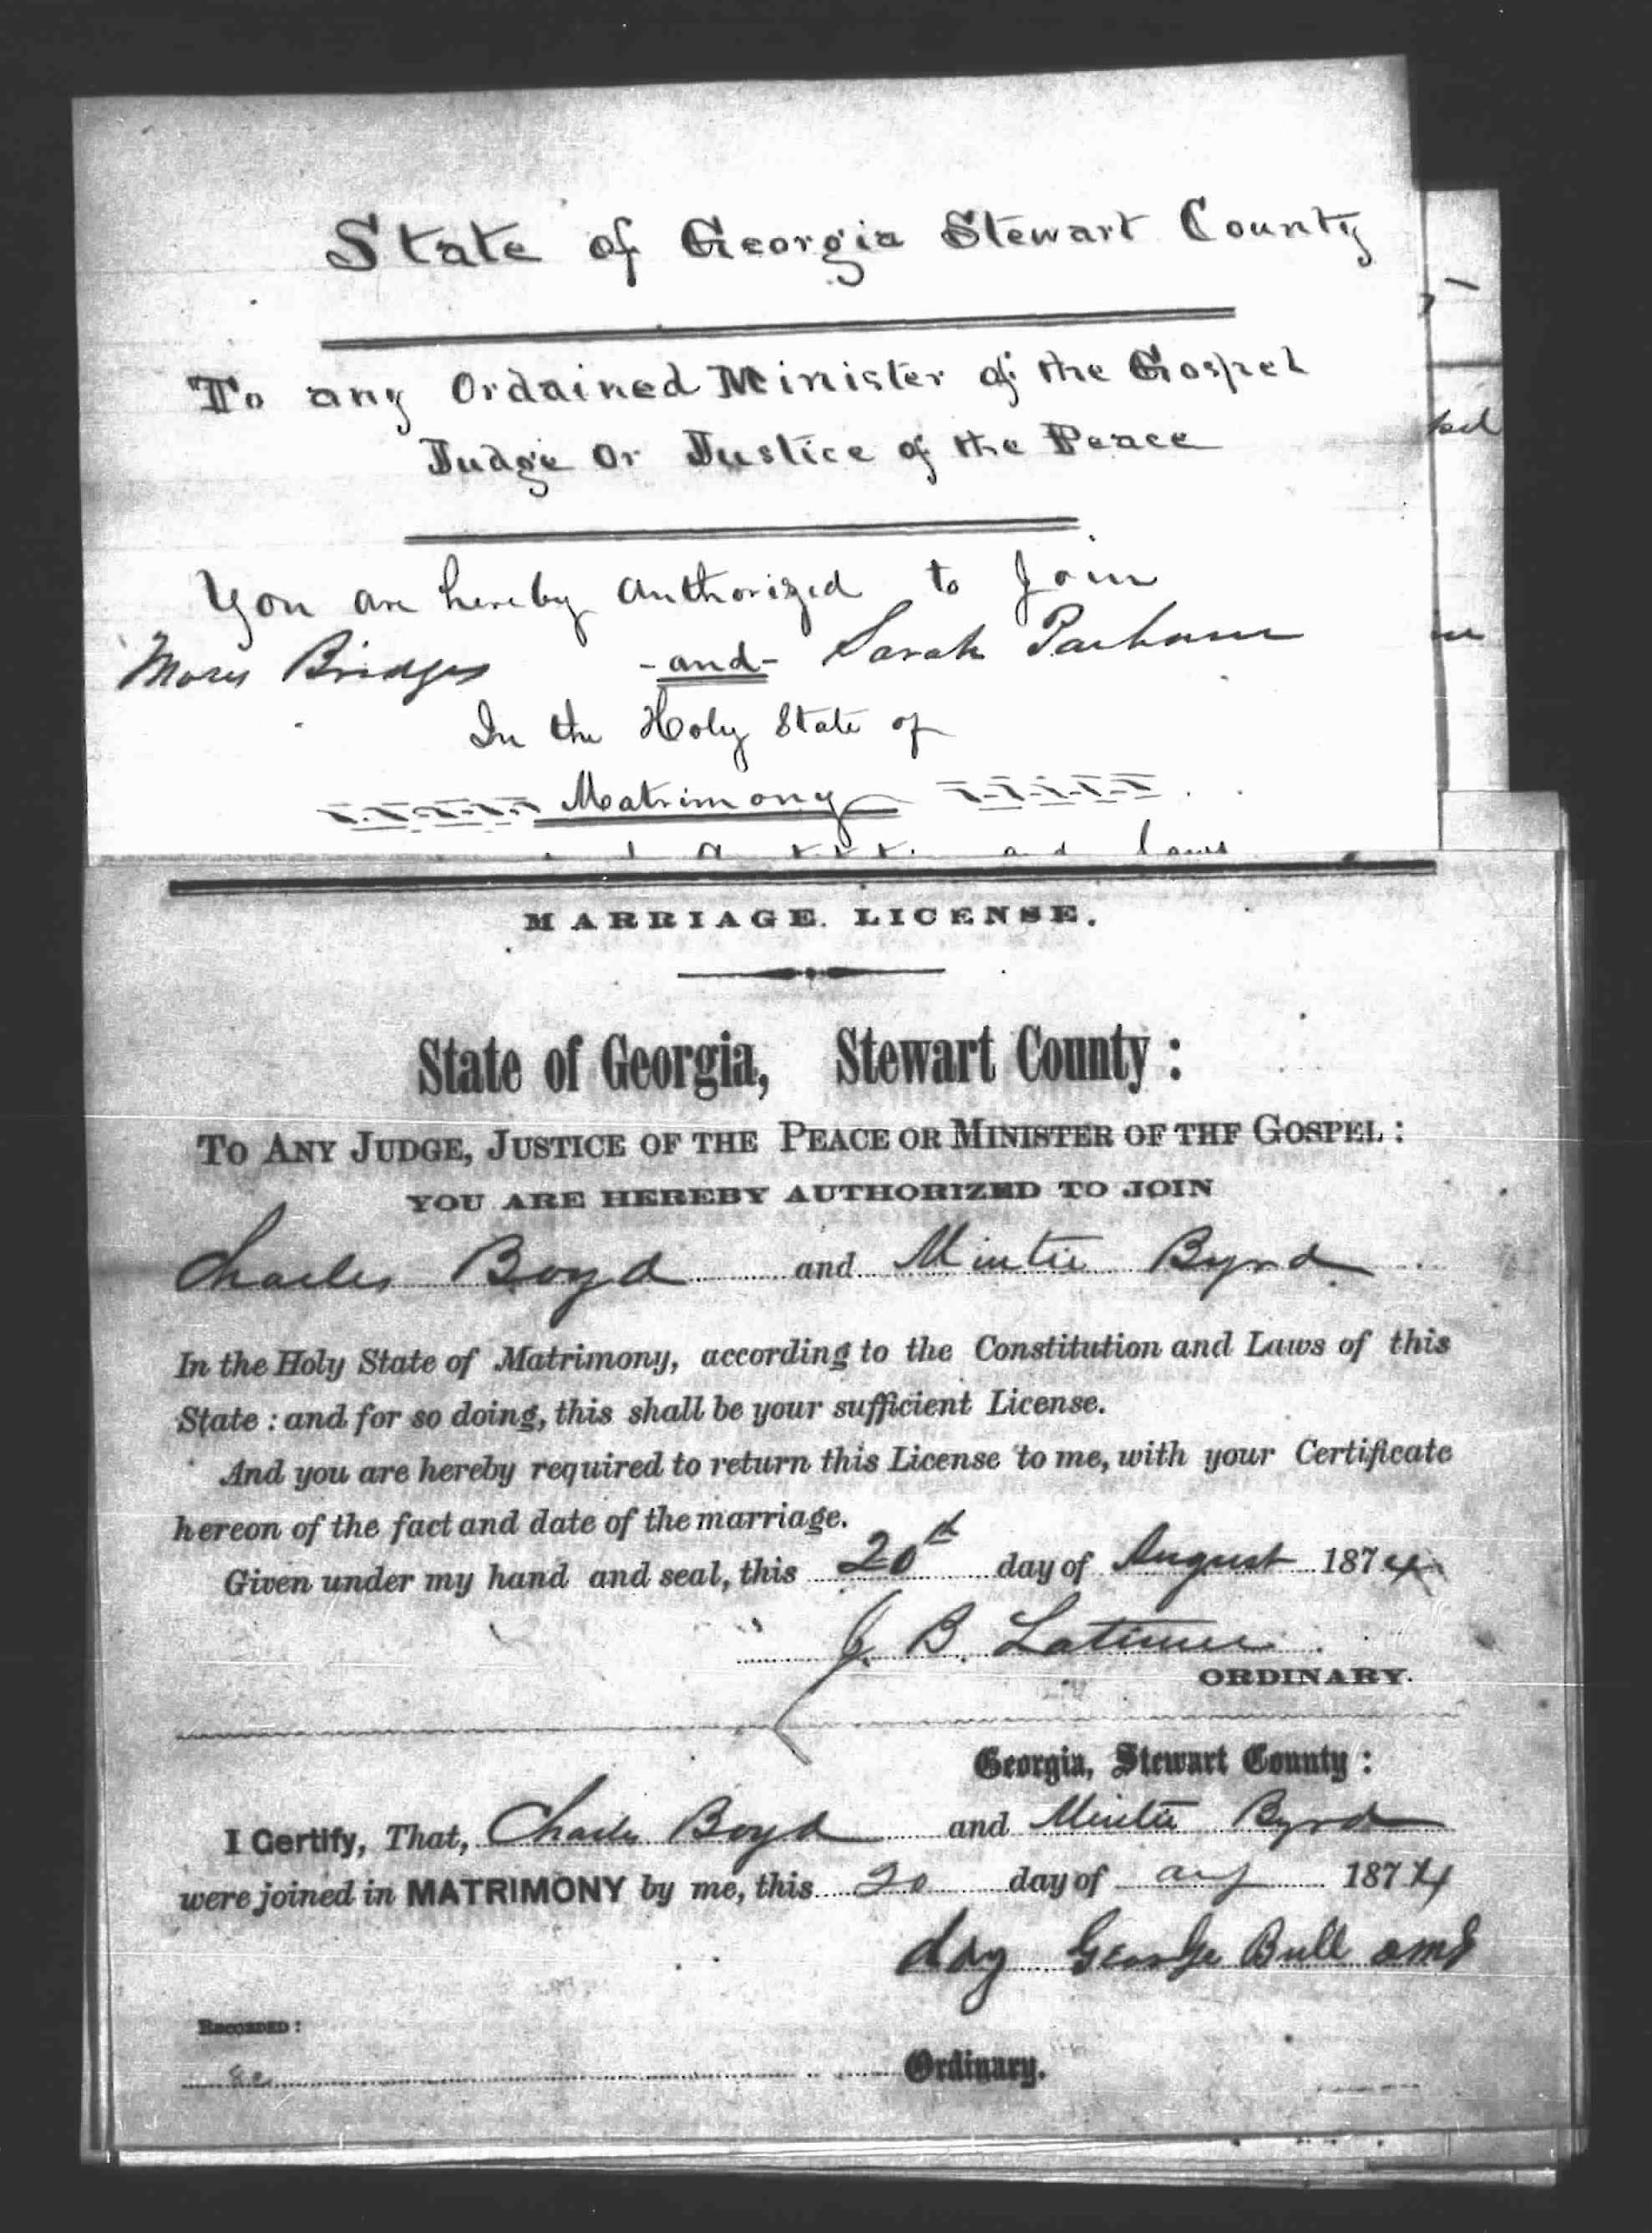 State of Georgia Stewart County
To any Ordained Minister of the Gospel
Judge Or Justice of the Peace
You are hereby authorized to Join
Bridges -and- Sarah Parham
In the Holy State of
Matrimony
and laws
MARRIAGE. LICENSE.
State of Georgia, Stewart County:
TO ANY JUDGE, JUSTICE OF THE PEACE OR MINISTER OF THE GOSPEL:
YOU ARE HEREBY AUTHORIZED TO JOIN
Charles Boyd and Mintie Byrd
In the Holy State of Matrimony, according to the Constitution and Laws of this
State: and for so doing, this shall be your sufficient License.
And you are hereby required to return this License to me, with your Certificate
hereon of the fact and date of the marriage.
Given under my hand and seal, this 20th day of August 1874
J. B. Latimer
ORDINARY.
Georgia, Stewart County:
I Certify, That, Charles Boyd and Mintie Byrd
were joined in MATRIMONY by me, this 20 day of aug 1874
day George Bull
RECORDED:
Ordinary.